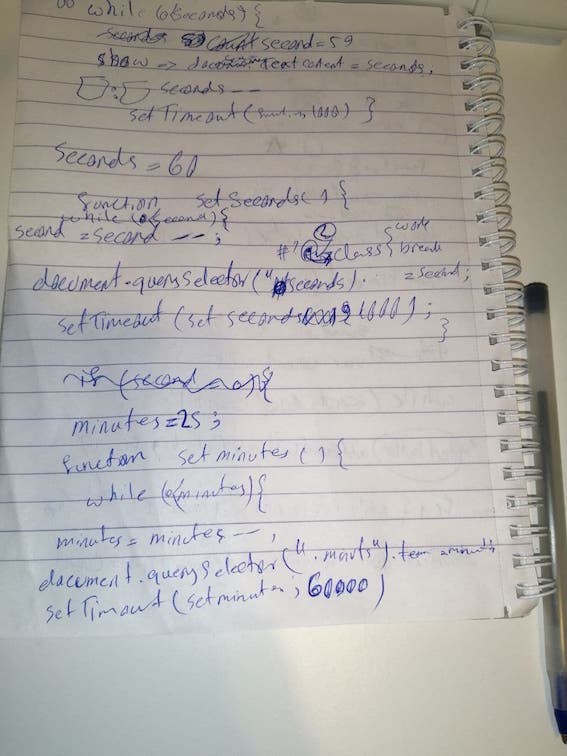 while (0<seconds) {
seconds count second = 59
show => document text content = seconds.
seconds --
set Timeout ( 1000) }
seconds = 60
function set Seconds ( ) {
while (0 second) {
second = second --;
work
#1 class { break
document.querySelector("#seconds). = second;
setTimeout (set seconds , 1000);
}
if (second = 0) {
minutes = 25;
function set minutes ( ) {
while (0<minutes) {
minutes = minutes --,
document.querySelector(". "). minuts
set Timout (setminutes ; 60000)